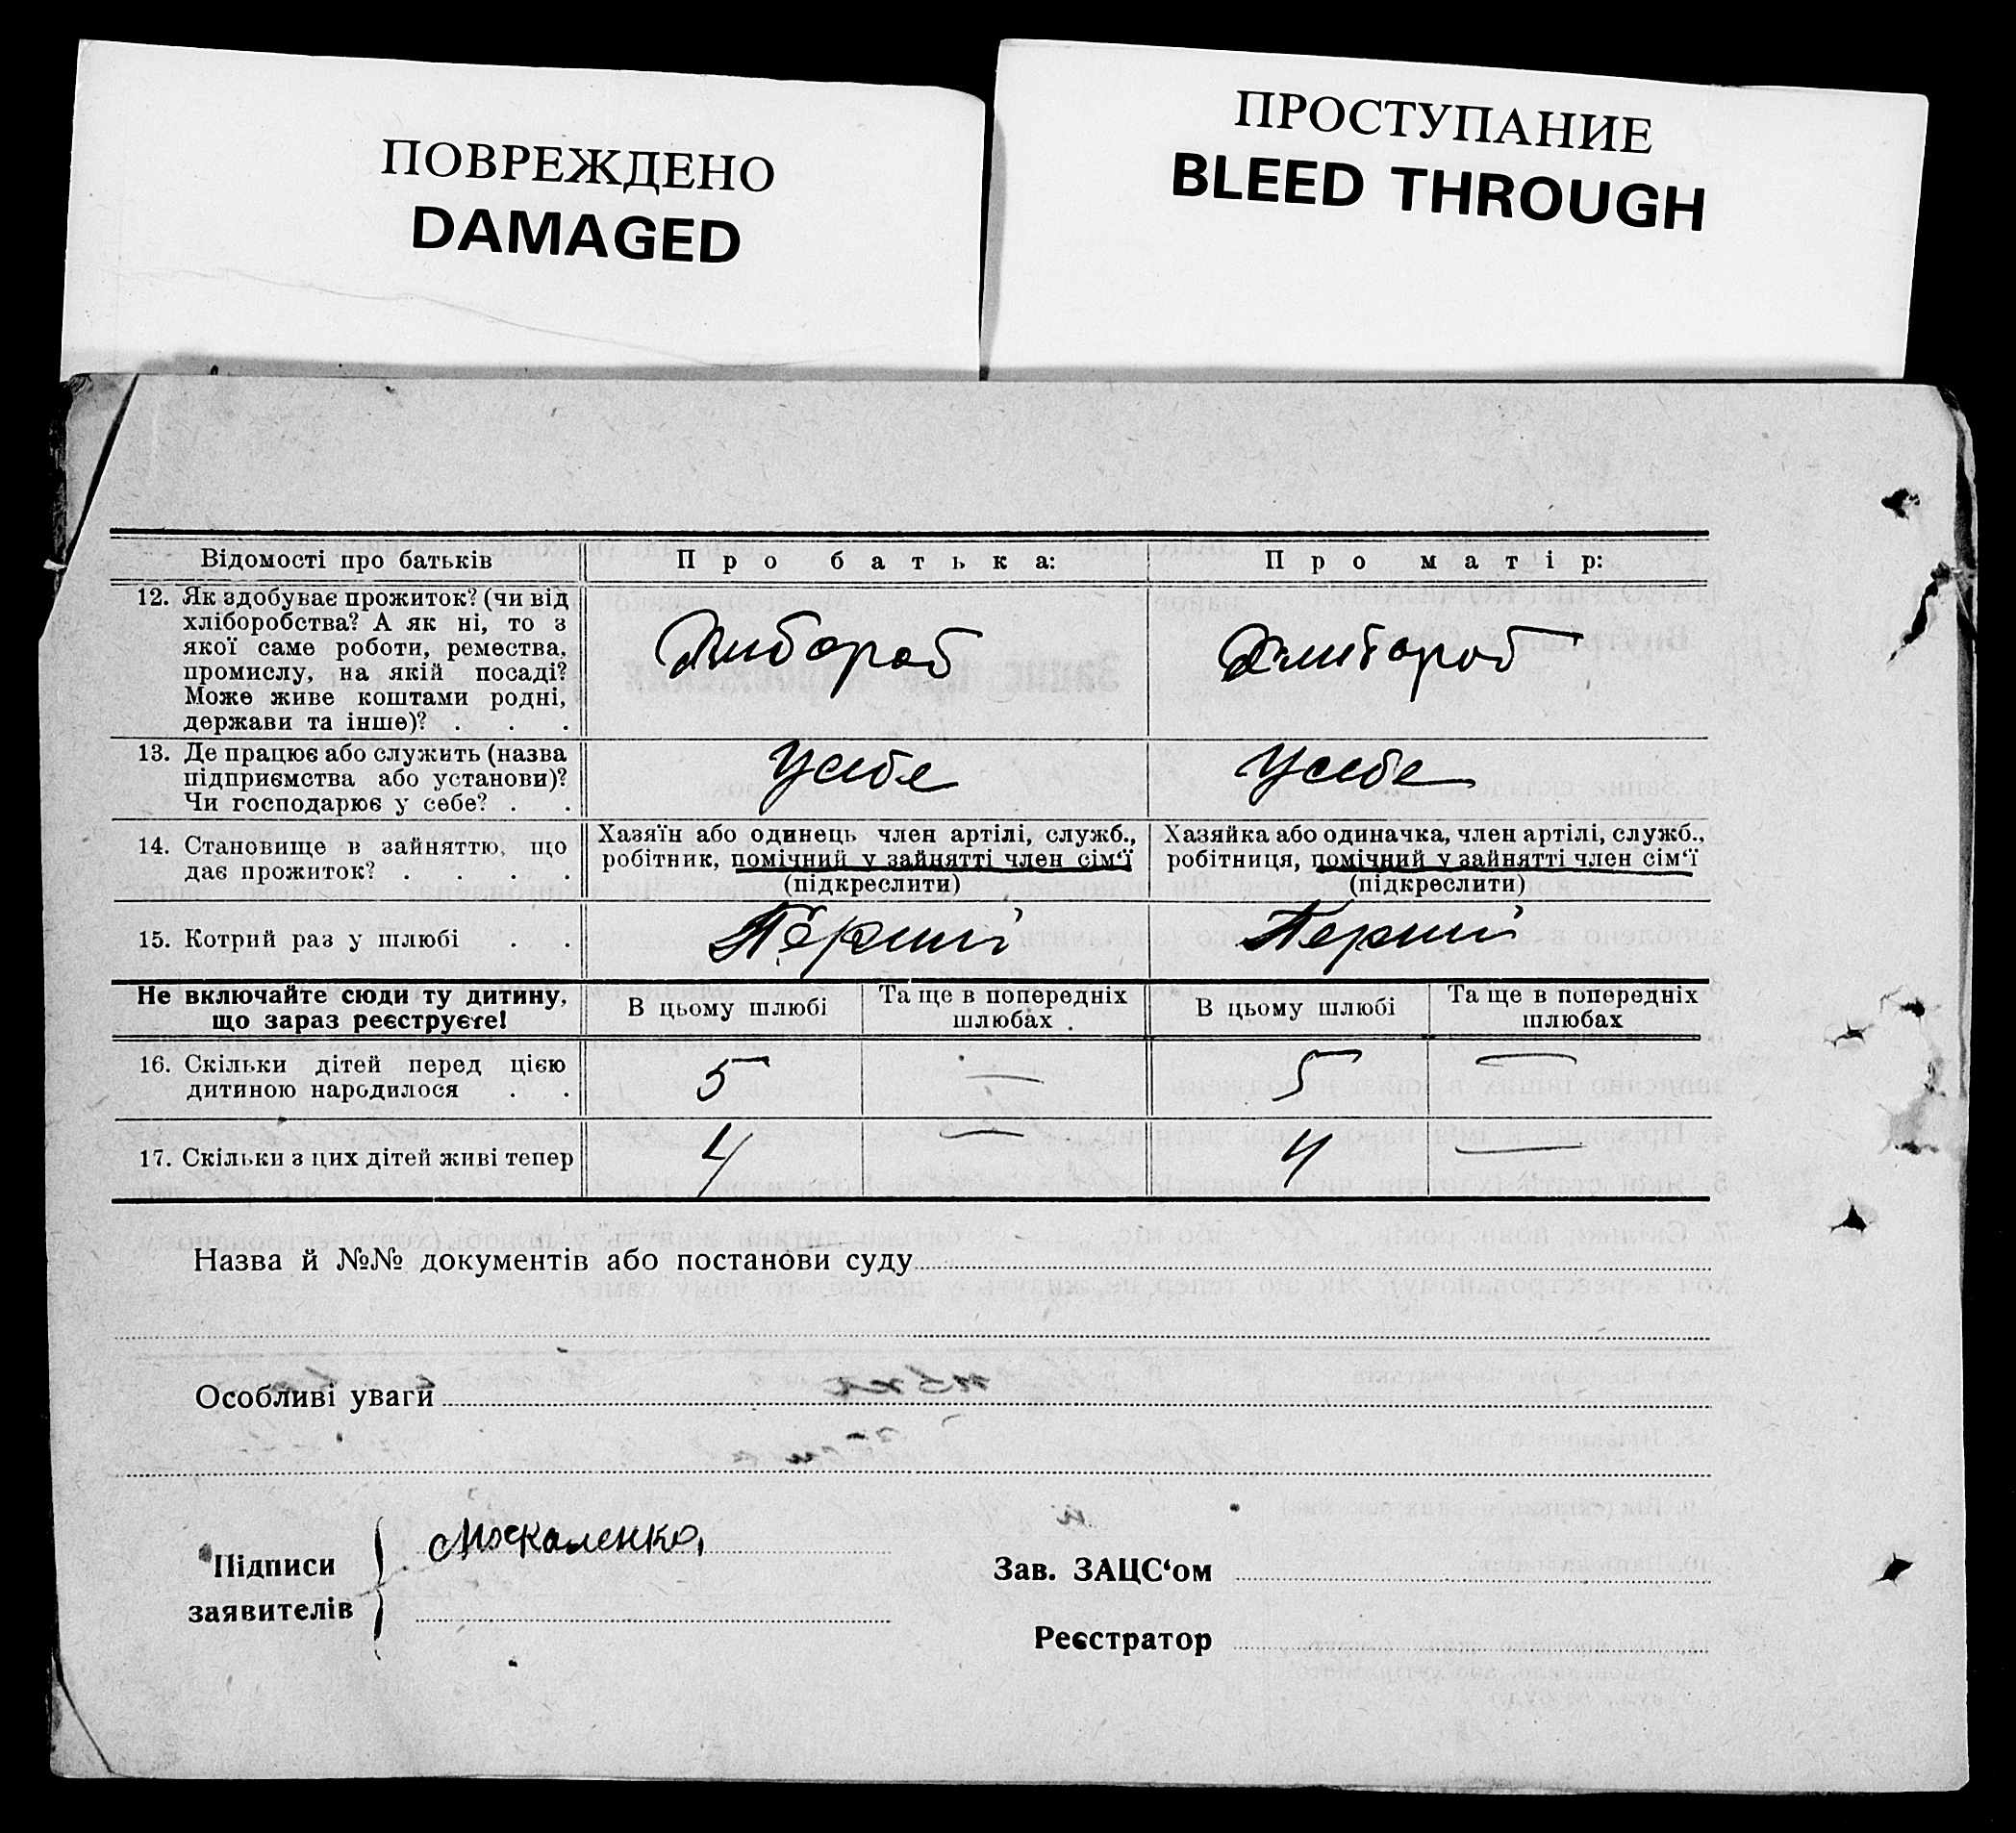 ПОВРЕЖДЕНО
DAMAGED
ПРОСТУПАНИЕ
BLEED THROUGH
Відомості про батьків
Про батька:
Про матір:
12. Як здобуває прожиток? (чи від
хліборобства? А як ні, то з
якої саме роботи, ремества,
промислу, на якій посаді?
Може живе коштами родні,
держави та інше)? . . .
Хлибороб
Хлибороб
13. Де працює або служить (назва
підприємства або установи)?
Чи господарює у себе? . .
Усебе
Усебе
14. Становище в зайняттю, що
дає прожиток? . . . .
Хазяїн або одинець член артілі, служб.,
робітник, помічний у зайнятті член сім‘ї
(підкреслити)
Хазяйка або одиначка, член артілі, служб.,
робітниця, помічний у зайнятті член сім‘ї
(підкреслити)
15. Котрий раз у шлюбі . .
Перший
Перший
Не включайте сюди ту дитину,
що зараз реєструєте!
В цьому шлюбі
Та ще в попередніх
шлюбах
В цьому шлюбі
Та ще в попередніх
шлюбах
16. Скільки дітей перед цією
дитиною народилося . .
5
—
5
—
17. Скільки з цих дітей живі тепер
4
—
4
—
Назва й №№ документів або постанови суду
Особливі уваги
Підписи
заявителів
Москаленко,
Зав. ЗАЦС‘ом
Реєстратор